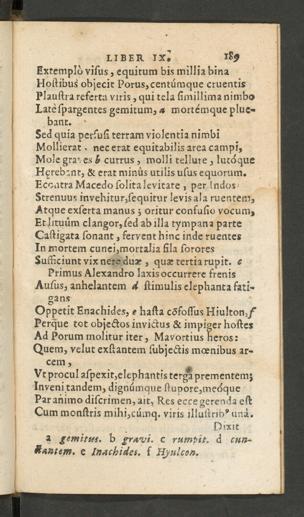 LIBER IX. 189
Extemplò visus, equitum bis millia bina
Hostibus objecit Porus, centúmque cruentis
Plaustra referta viris, qui tela simillima nimbo
Latè spargentes gemitum, a mortémque plue-
bant.
Sed quia perfusi terram violentia nimbi
Mollierat, nec erat equitabilis area campi,
Mole graves b currus, molli tellure, lutóque
Hęrebant, & erat minùs utilis usus equorum.
Econtra Macedo solita levitate, per Indos
Strenuus invehitur, sequitur levis ala ruentem,
Atque exserta manus; oritur confusio vocum,
Et lituûm clangor, sed ab illa tympana parte
Castigata sonant, fervent hinc inde ruentes
In mortem cunei, mortalia fila sorores
Sufficiunt vix nere duæ, quæ tertia rupit. c
Primus Alexandro laxis occurrere frenis
Ausus, anhelantem d stimulis elephanta fati-
gans
Oppetit Enachides, e hasta cõfossus Hiulton, f
Perque tot objectos invictus & impiger hostes
Ad Porum molitur iter, Mavortius heros:
Quem, velut exstantem subjectis mœnibus ar-
cem,
Vt procul aspexit, elephantis terga prementem;
Inveni tandem, dignúmque stupore, meóque
Par animo discrimen, ait, Res ecce gerenda est
Cum monstris mihi, cúmq. viris illustribꝰ unà.
Dixit
a gemitus. b gravi. c rumpit. d cun-
ctantem. e Inachides. f Hyulcon.